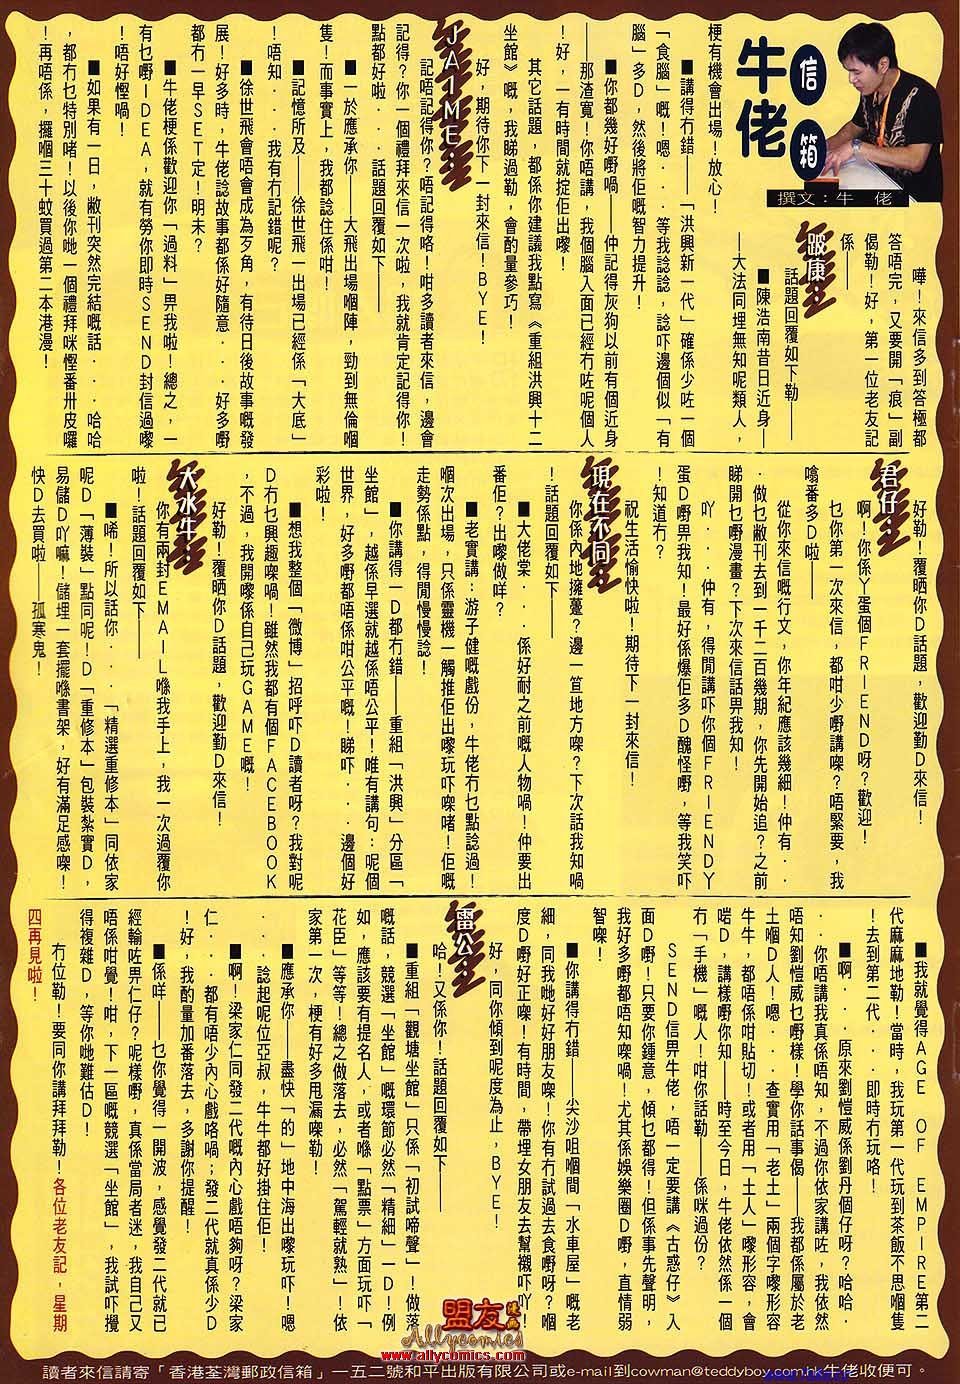 牛佬
信箱
撰文：牛 佬
嘩！來信多到答極都
答唔完，又要開「痕」副
偈勒！好，第一位老友記
係——
破康
話題回覆如下勒——
■陳浩南昔日近身—
—大法同埋無知呢類人，
梗有機會出場！放心！
■講得冇錯——「洪興新一代」確係少咗一個
「食腦」嘅！嗯．．．等我諗諗，諗吓邊個似「有
腦」多D，然後將佢嘅智力提升！
■你都幾好嘢喎——仲記得灰狗以前有個近身
——那渣寬！你唔講，我個腦入面已經冇咗呢個人
！好，一有時間就掟佢出嚟！
其它話題，都係你建議我點寫《重組洪興十二
坐館》嘅，我睇過勒，會酌量參巧！
好，期待你下一封來信！BYE！
JAIME
記唔記得你？唔記得咯！咁多讀者來信，邊會
記得？你一個禮拜來信一次啦，我就肯定記得你！
點都好啦．．．話題回覆如下——
■一於應承你——大飛出場嗰陣，勁到無倫嗰
隻！而事實上，我都諗住係咁！
■記憶所及——徐世飛一出場已經係「大底」
！唔知．．．我有冇記錯呢？
■徐世飛會唔會成為歹角，有待日後故事嘅發
展！好多時，牛佬諗故事都係好隨意．．．好多嘢
都冇一早SET定！明未？
■牛佬梗係歡迎你「過料」畀我啦！總之，一
有乜嘢IDEA，就有勞你即時SEND封信過嚟
！唔好慳喎！
■如果有一日，敝刊突然完結嘅話．．．哈哈
，都冇乜特別啫！以後你哋一個禮拜咪慳番卅皮囉
！再唔係，攞嗰三十蚊買過第二本港漫！
好勒！覆晒你D話題，歡迎勤D來信！
君仔
啊！你係Y蛋個FRIEND呀？歡迎！
乜你第一次來信，都咁少嘢講㗎？唔緊要，我
噏番多D啦——
從你來信嘅行文，你年紀應該幾細！仲有．．
．做乜敝刊去到一千二百幾期，你先開始追？之前
睇開乜嘢漫畫？下次來信話畀我知！
吖．．．仲有，得閒講吓你個FRIENDY
蛋D嘢畀我知！最好係爆佢多D醜怪嘢，等我笑吓
！知道冇？
祝生活愉快啦！期待下一封來信！
現在不同
你係內地擁躉？邊一笪地方㗎？下次話我知喎
！話題回覆如下——
■大佬棠．．．係好耐之前嘅人物喎！仲要出
番佢？出嚟做咩？
■老實講：游子健嘅戲份，牛佬冇乜點諗過！
嗰次出場，只係靈機一觸推佢出嚟玩吓㗎啫！佢嘅
走勢係點，得閒慢慢諗！
■你講得一D都冇錯——重組「洪興」分區「
坐館」，越係早選就越係唔公平！唯有講句：呢個
世界，好多嘢都唔係咁公平嘅！睇吓．．．邊個好
彩啦！
■想我整個「微博」招呼吓D讀者呀？我對呢
D冇乜興趣㗎喎！雖然我都有個FACEBOOK
，不過，我開嚟係自己玩GAME嘅！
好勒！覆晒你D話題，歡迎勤D來信！
大水牛
你有兩封EMAIL喺我手上，我一次過覆你
啦！話題回覆如下——
■唏！所以話你．．．「精選重修本」同依家
呢D「薄裝」點同呢！D「重修本」包裝紮實D，
易儲D吖嘛！儲埋一套擺喺書架，好有滿足感㗎！
快D去買啦——孤寒鬼！
■我就覺得AGE OF EMPIRE第二
代麻麻地勒！當時，我玩第一代玩到茶飯不思嗰隻
！去到第二代．．．即時冇玩咯！
■啊．．．原來劉愷威係劉丹個仔呀？哈哈．
．．你唔講我真係唔知，不過你依家講咗，我依然
唔知劉愷威乜嘢樣！學你話事偈——我都係屬於老
土嗰D人！嗯．．．查實用「老土」兩個字嚟形容
牛牛，都唔係咁貼切！或者用「土人」嚟形容，會
啱D，講樣嘢你知——時至今日，牛佬依然係一個
冇「手機」嘅人！咁你話勒——係咪過份？
SEND信畀牛佬，唔一定要講《古惑仔》入
面D嘢！只要你鍾意，傾乜都得！但係事先聲明，
我好多嘢都唔知㗎喎！尤其係娛樂圈D嘢，直情弱
智㗎！
■你講得冇錯——尖沙咀嗰間「水車屋」嘅老
細，同我哋好好朋友㗎！你有冇試過去食嘢呀？嗰
度D嘢好正㗎！有時間，帶埋女朋友去幫襯吓吖！
好，同你傾到呢度為止，BYE！
雷公
哈！又係你！話題回覆如下——
■重組「觀塘坐館」只係「初試啼聲」！做落
嘅話，競選「坐館」嘅環節必然「精細」一D！例
如，應該要有提名人，或者喺「點票」方面玩吓「
花臣」等等！總之做落去，必然「駕輕就熟」！依
家第一次，梗有好多甩漏㗎勒！
■應承你——盡快「的」地中海出嚟玩吓！嗯
．．．諗起呢位亞叔，牛牛都好掛住佢！
■啊！梁家仁同發二代嘅內心戲唔夠呀？梁家
仁．．．都有唔少內心戲咯喎；發二代就真係少D
！好，我酌量加番落去，多謝你提醒！
■係咩——乜你覺得一開波，感覺發二代就已
經輸咗畀仁仔？呢樣嘢，真係當局者迷，我自己又
唔係咁覺！咁，下一區嘅競選「坐館」，我試吓攪
得複雜D，等你哋難估D！
冇位勒！要同你講拜拜勒！各位老友記，星期
四再見啦！
盟友漫画
Allycomics
www.allycomics.com
讀者來信請寄「香港荃灣郵政信箱」一五二號和平出版有限公司或e-mail到cowman@teddyboy.com.hk牛佬收便可。